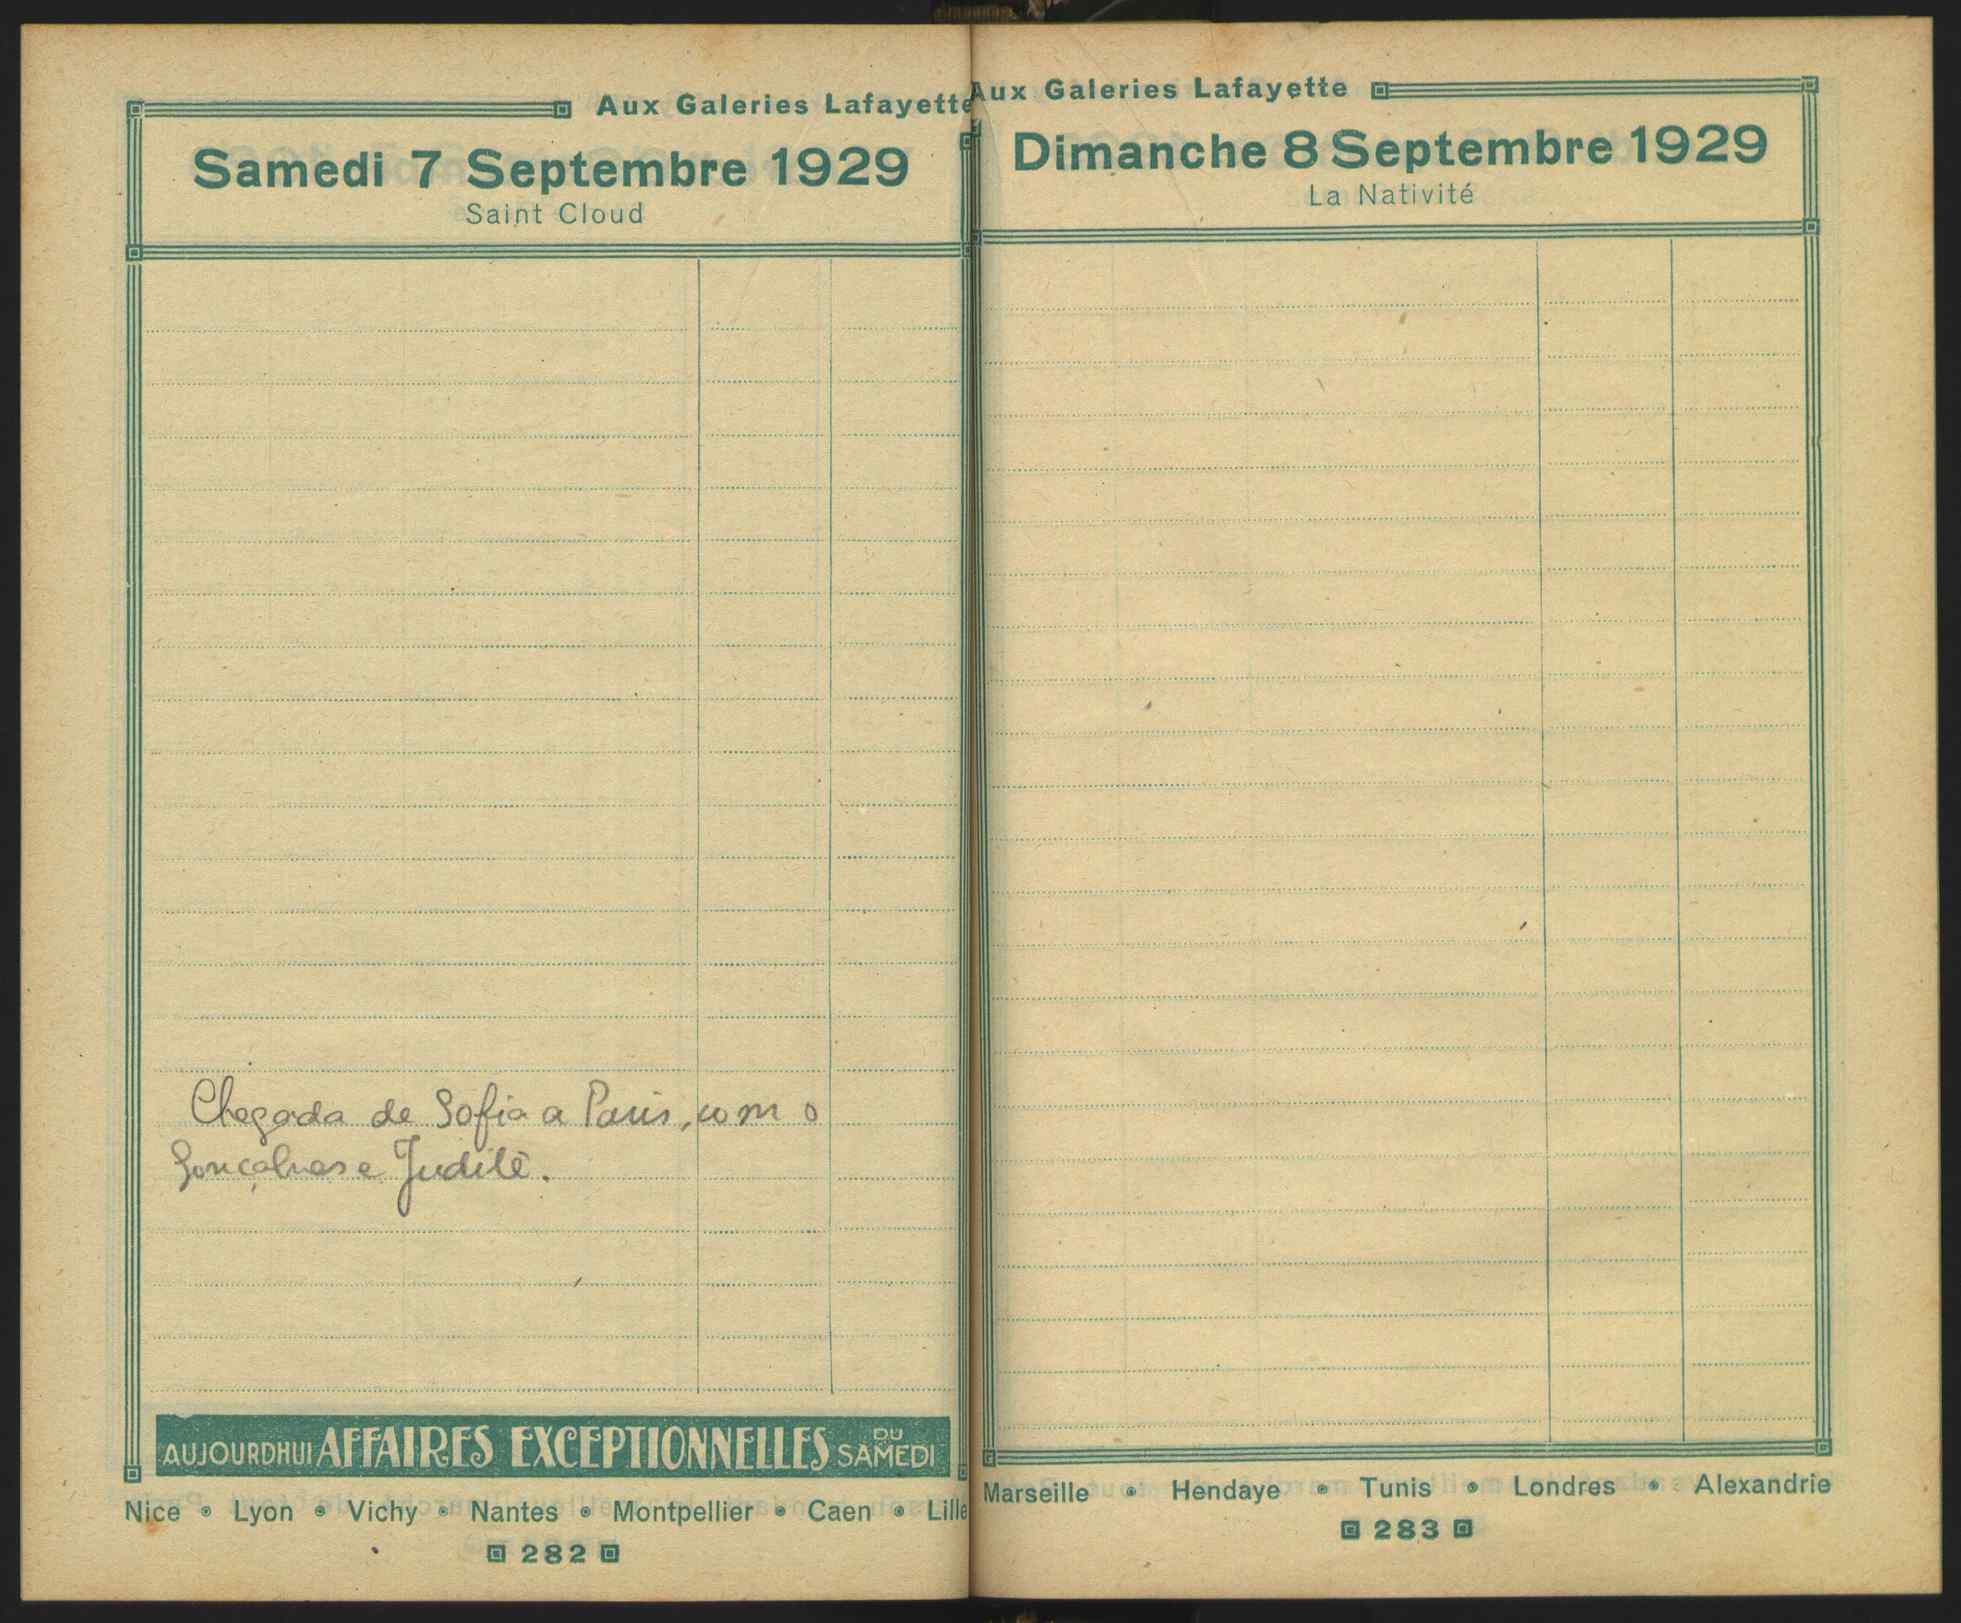 Aux Galeries Lafayette
Samedi 7 Septembre 1929
Saint Cloud
Chegada de Sofia a Paris, com o
Gonçalves e Judite.
AUJOURDHUI AFFAIRES EXCEPTIONNELLES DU SAMEDI
Nice • Lyon • Vichy • Nantes • Montpellier • Caen • Lille
282
Aux Galeries Lafayette
Dimanche 8 Septembre 1929
La Nativité
Marseille • Hendaye • Tunis • Londres • Alexandrie
283